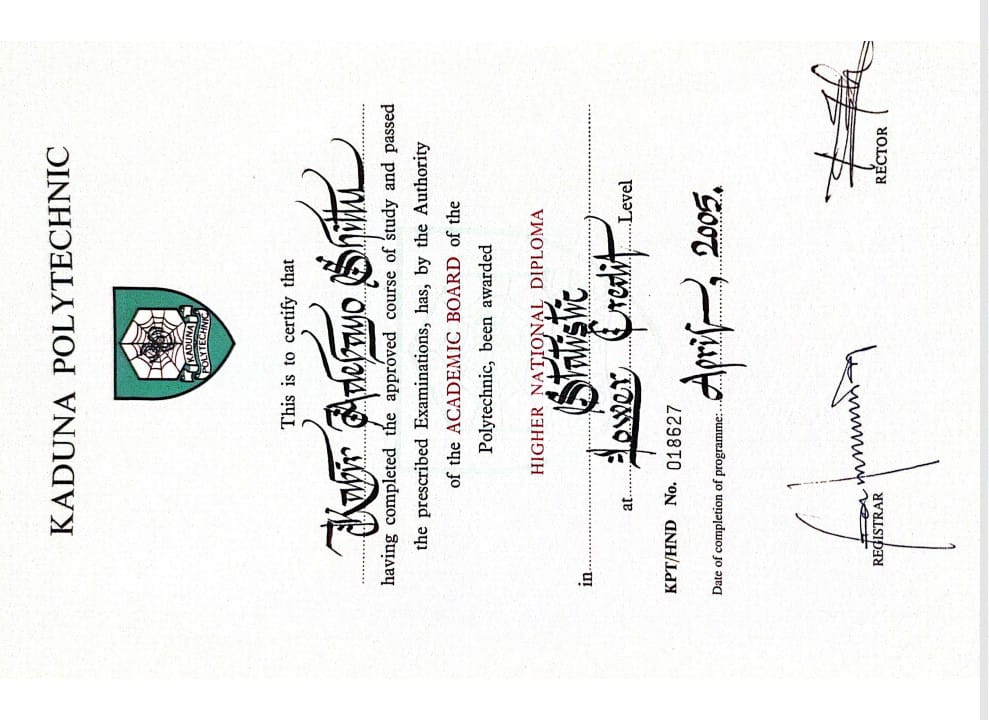 KADUNA POLYTECHNIC
KADUNA
POLYTECHNIC
This is to certify that
Kabir Adebayo Shittu
having completed the approved course of study and passed
the prescribed Examinations, has, by the Authority
of the ACADEMIC BOARD of the
Polytechnic, been awarded
HIGHER NATIONAL DIPLOMA
in Statistic
at Lower Credit Level
KPT/HND No. 018627
Date of completion of programme: April, 2005.
REGISTRAR
RECTOR